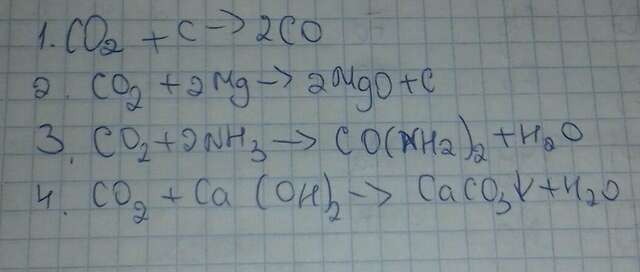 1. CO₂ + C → 2CO
2. CO₂ + 2Mg → 2MgO + C
3. CO₂ + 2NH₃ → CO(NH₂)₂ + H₂O
4. CO₂ + Ca(OH)₂ → CaCO₃↓ + H₂O